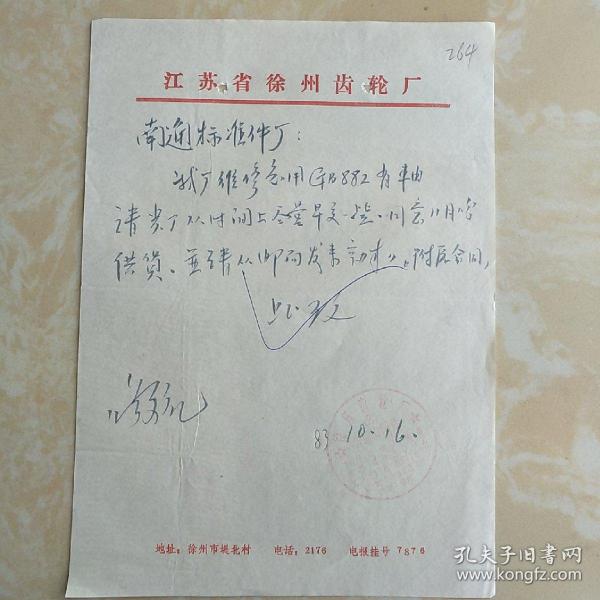 264
江苏省徐州齿轮厂
南通标准件厂：
我厂维修急用GB882有車由
请贵厂从时间上尽量早交一些.同意11月
供货、並请从邮局发来,附原合同,
此致
83.10.16.
地址：徐州市堤北村 电话：2176 电报挂号 7876
孔夫子旧书网
www.kongfz.com